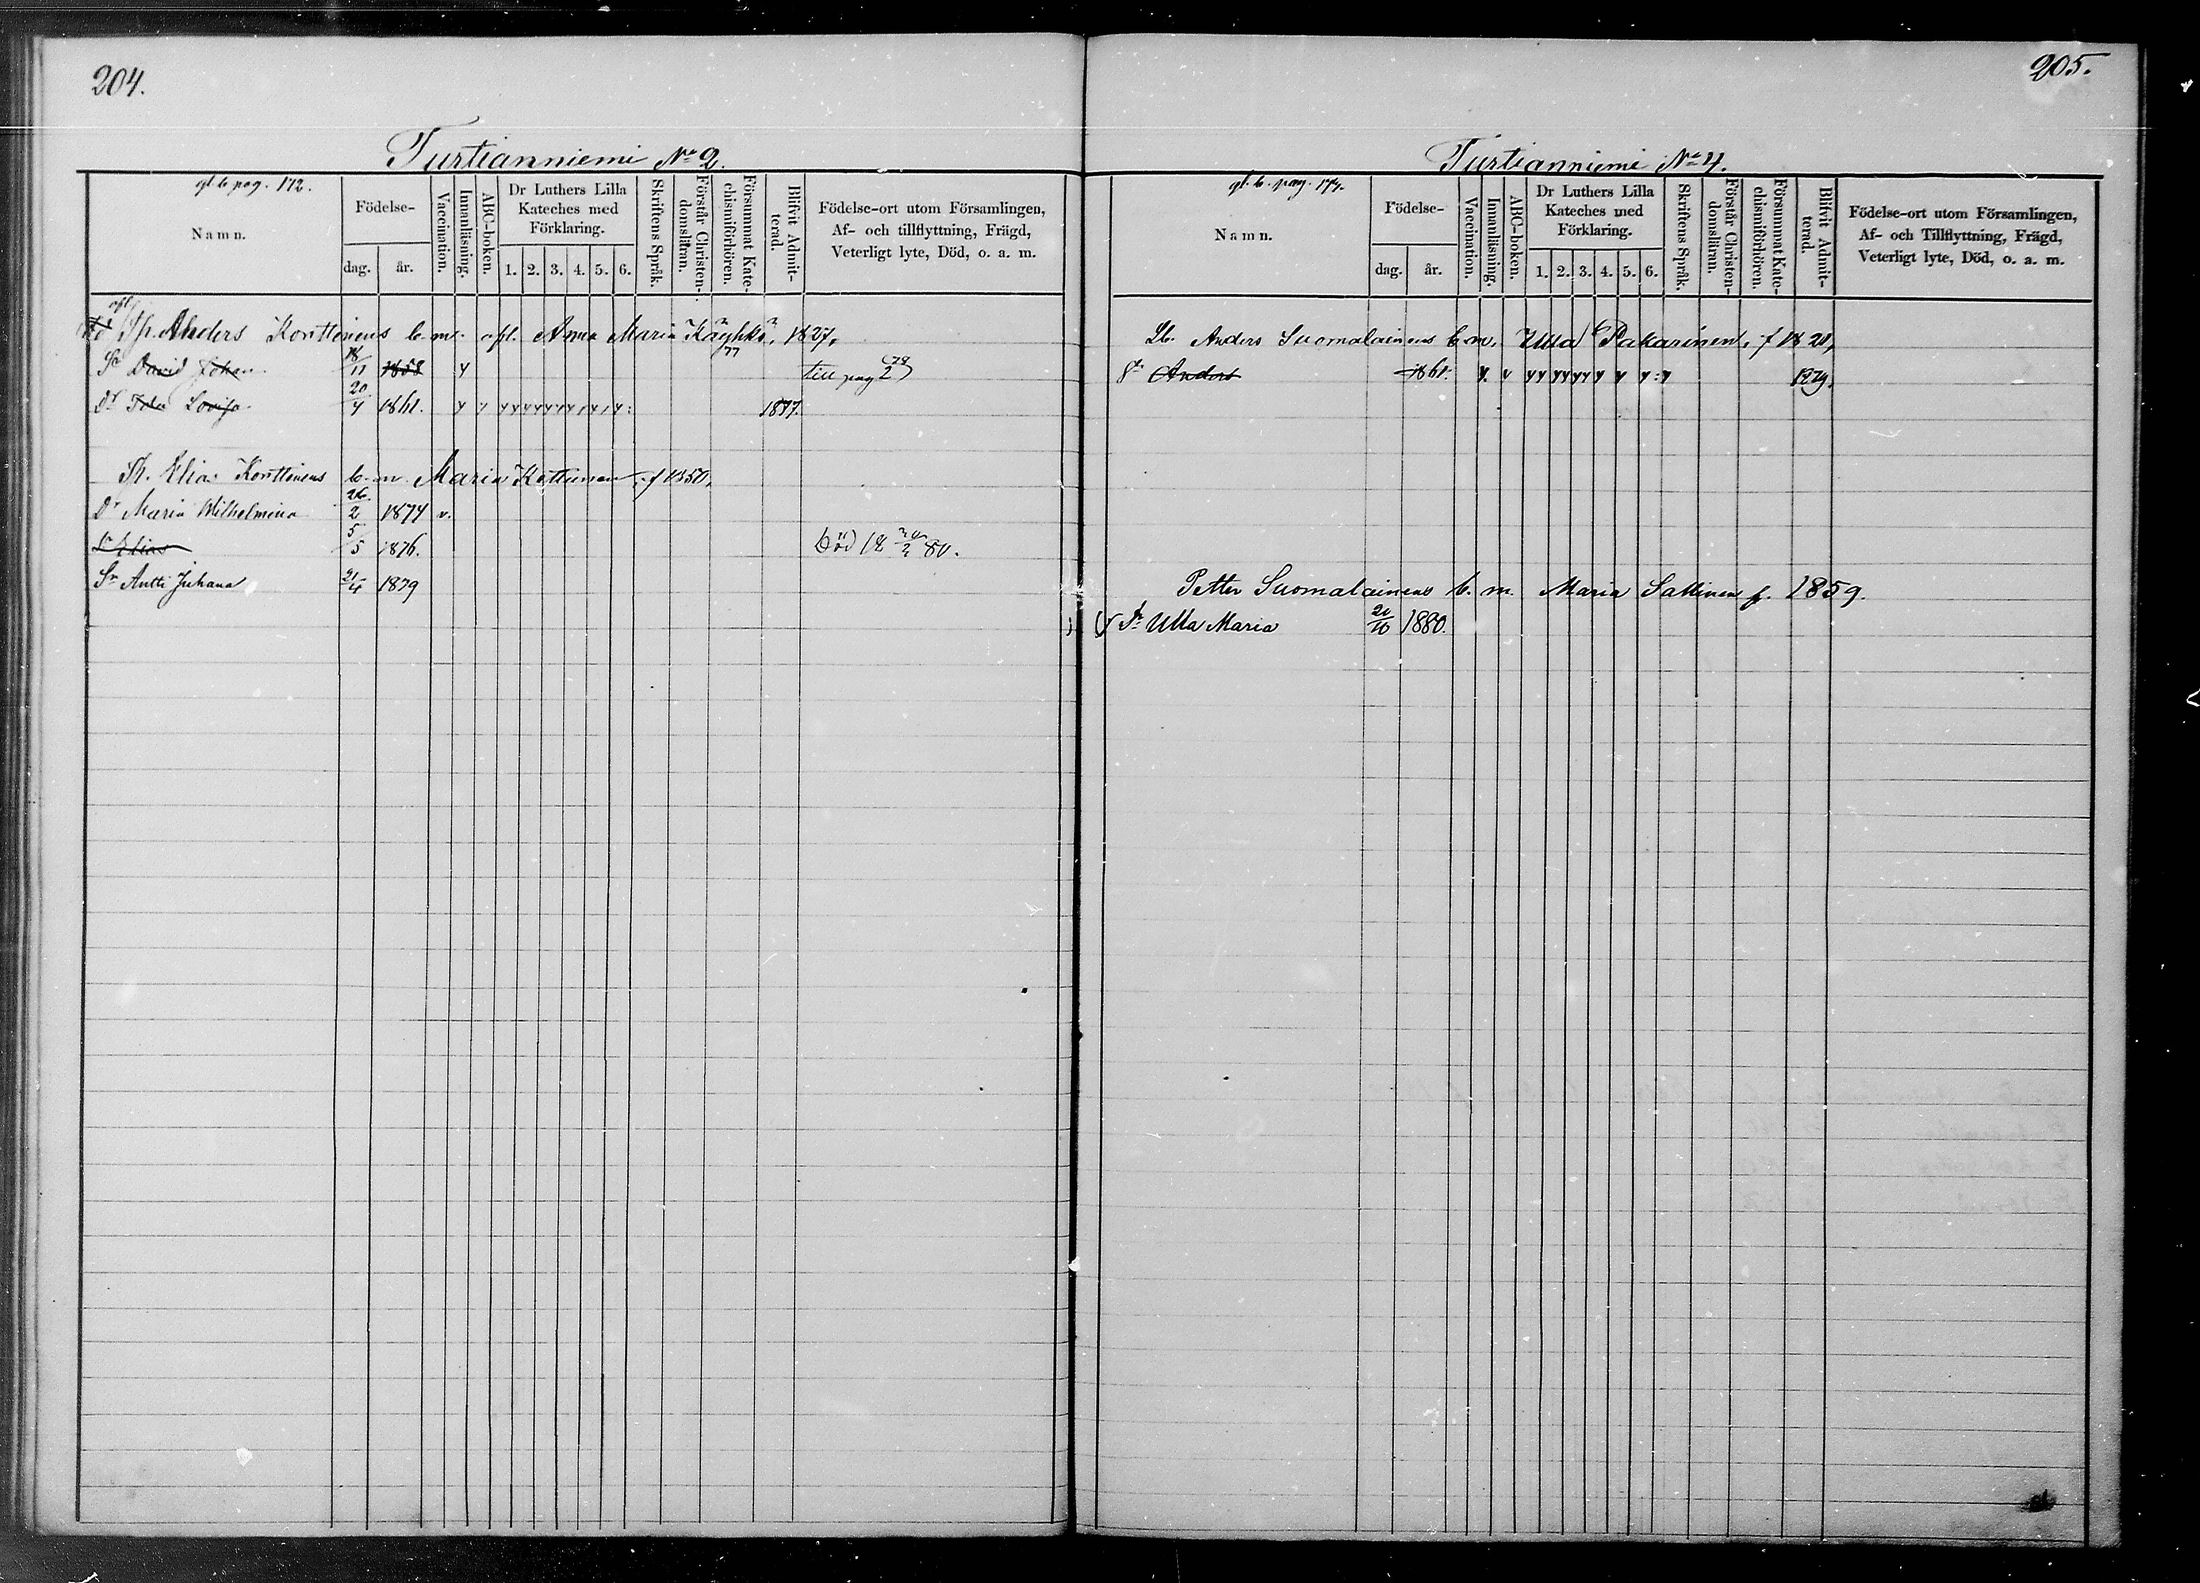 204.
Turtianniemi No 2.
gl. b. pag. 172.
Namn.
Födelse-
dag. år.
Vaccination.
Innanläsning.
ABC-boken.
Dr Luthers Lilla Kateches med Förklaring.
1. 2. 3. 4. 5. 6.
Skriftens Språk.
Förstår Christendomsläran.
Försummat Katechismiförhören.
Blifvit Admitterad.
Födelse-ort utom Församlingen, Af- och tillflyttning, Frägd, Veterligt lyte, Död, o. a. m.
Anders Konttinens b. m. afl. Anna Maria Käyhkö, 1827,
Sn David Johan 18/11 1858 y till pag 2
Dr Lovisa 20/4 1861. 1877.
Elias Konttinens b. m. Maria Kettunen, f 1850.
Dr Maria Wilhelmina 26/2 1874 v.
Sn Elias 5/5 1876. död 80.
Sn Antti Juhana 21/4 1879
205.
Turtianniemi No 4.
gl. b. pag. 174.
Namn.
Födelse-
dag. år.
Vaccination.
Innanläsning.
ABC-boken.
Dr Luthers Lilla Kateches med Förklaring.
1. 2. 3. 4. 5. 6.
Skriftens Språk.
Förstår Christendomsläran.
Försummat Katechismiförhören.
Blifvit Admitterad.
Födelse-ort utom Församlingen, Af- och Tillflyttning, Frägd, Veterligt lyte, Död, o. a. m.
Anders Suomalainens b. m. Ulla Pakarinen, f 1820,
Sn Anders 1861. 1879.
Petter Suomalainens b. m. Maria Sallinen f. 1859.
Ulla Maria 20/10 1880.